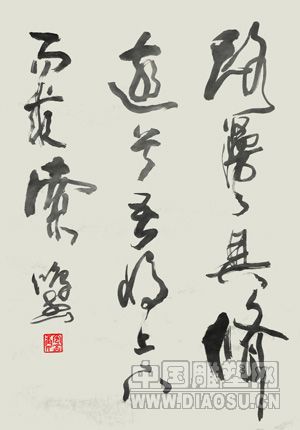 路漫々其脩
遠兮吾将上下
而求索
中国雕塑网
WWW.DIAOSU.CN